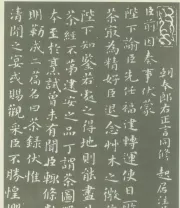 朝奉郎右正言同修起居注
臣前因奏事伏蒙
陛下諭臣先任福建轉運使日
茶最為精好臣退念草木之微
陛下知鑒若處之得地則能盡
茶經不第建安之品丁謂茶圖
本至於烹試曾未有聞臣輒條數
明勒成二篇名曰茶録伏惟
清閒之宴或賜觀采臣不勝惶